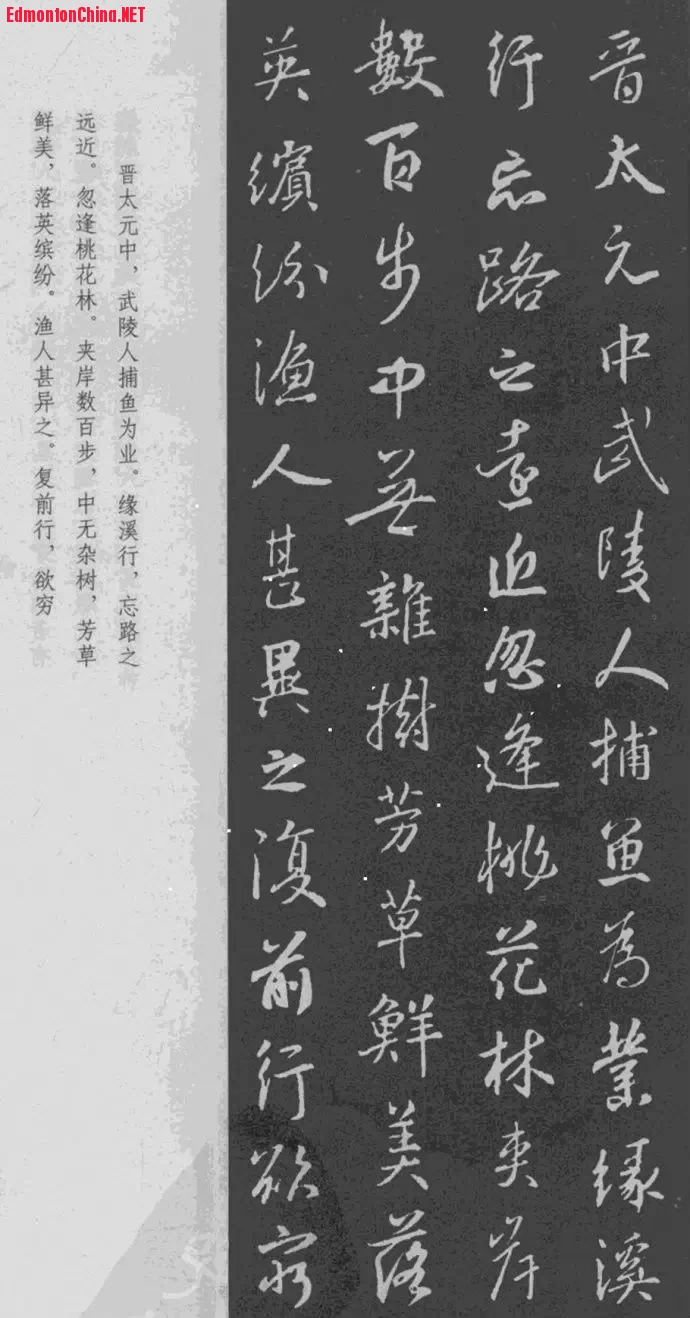 EdmontonChina.NET
晋太元中武陵人捕魚為業緣溪
行忘路之遠近忽逢桃花林夹岸
數百步中無雜樹芳草鮮美落
英繽紛漁人甚異之復前行欲窮
晋太元中，武陵人捕鱼为业。缘溪行，忘路之
远近。忽逢桃花林。夹岸数百步，中无杂树，芳草
鲜美，落英缤纷。渔人甚异之。复前行，欲穷